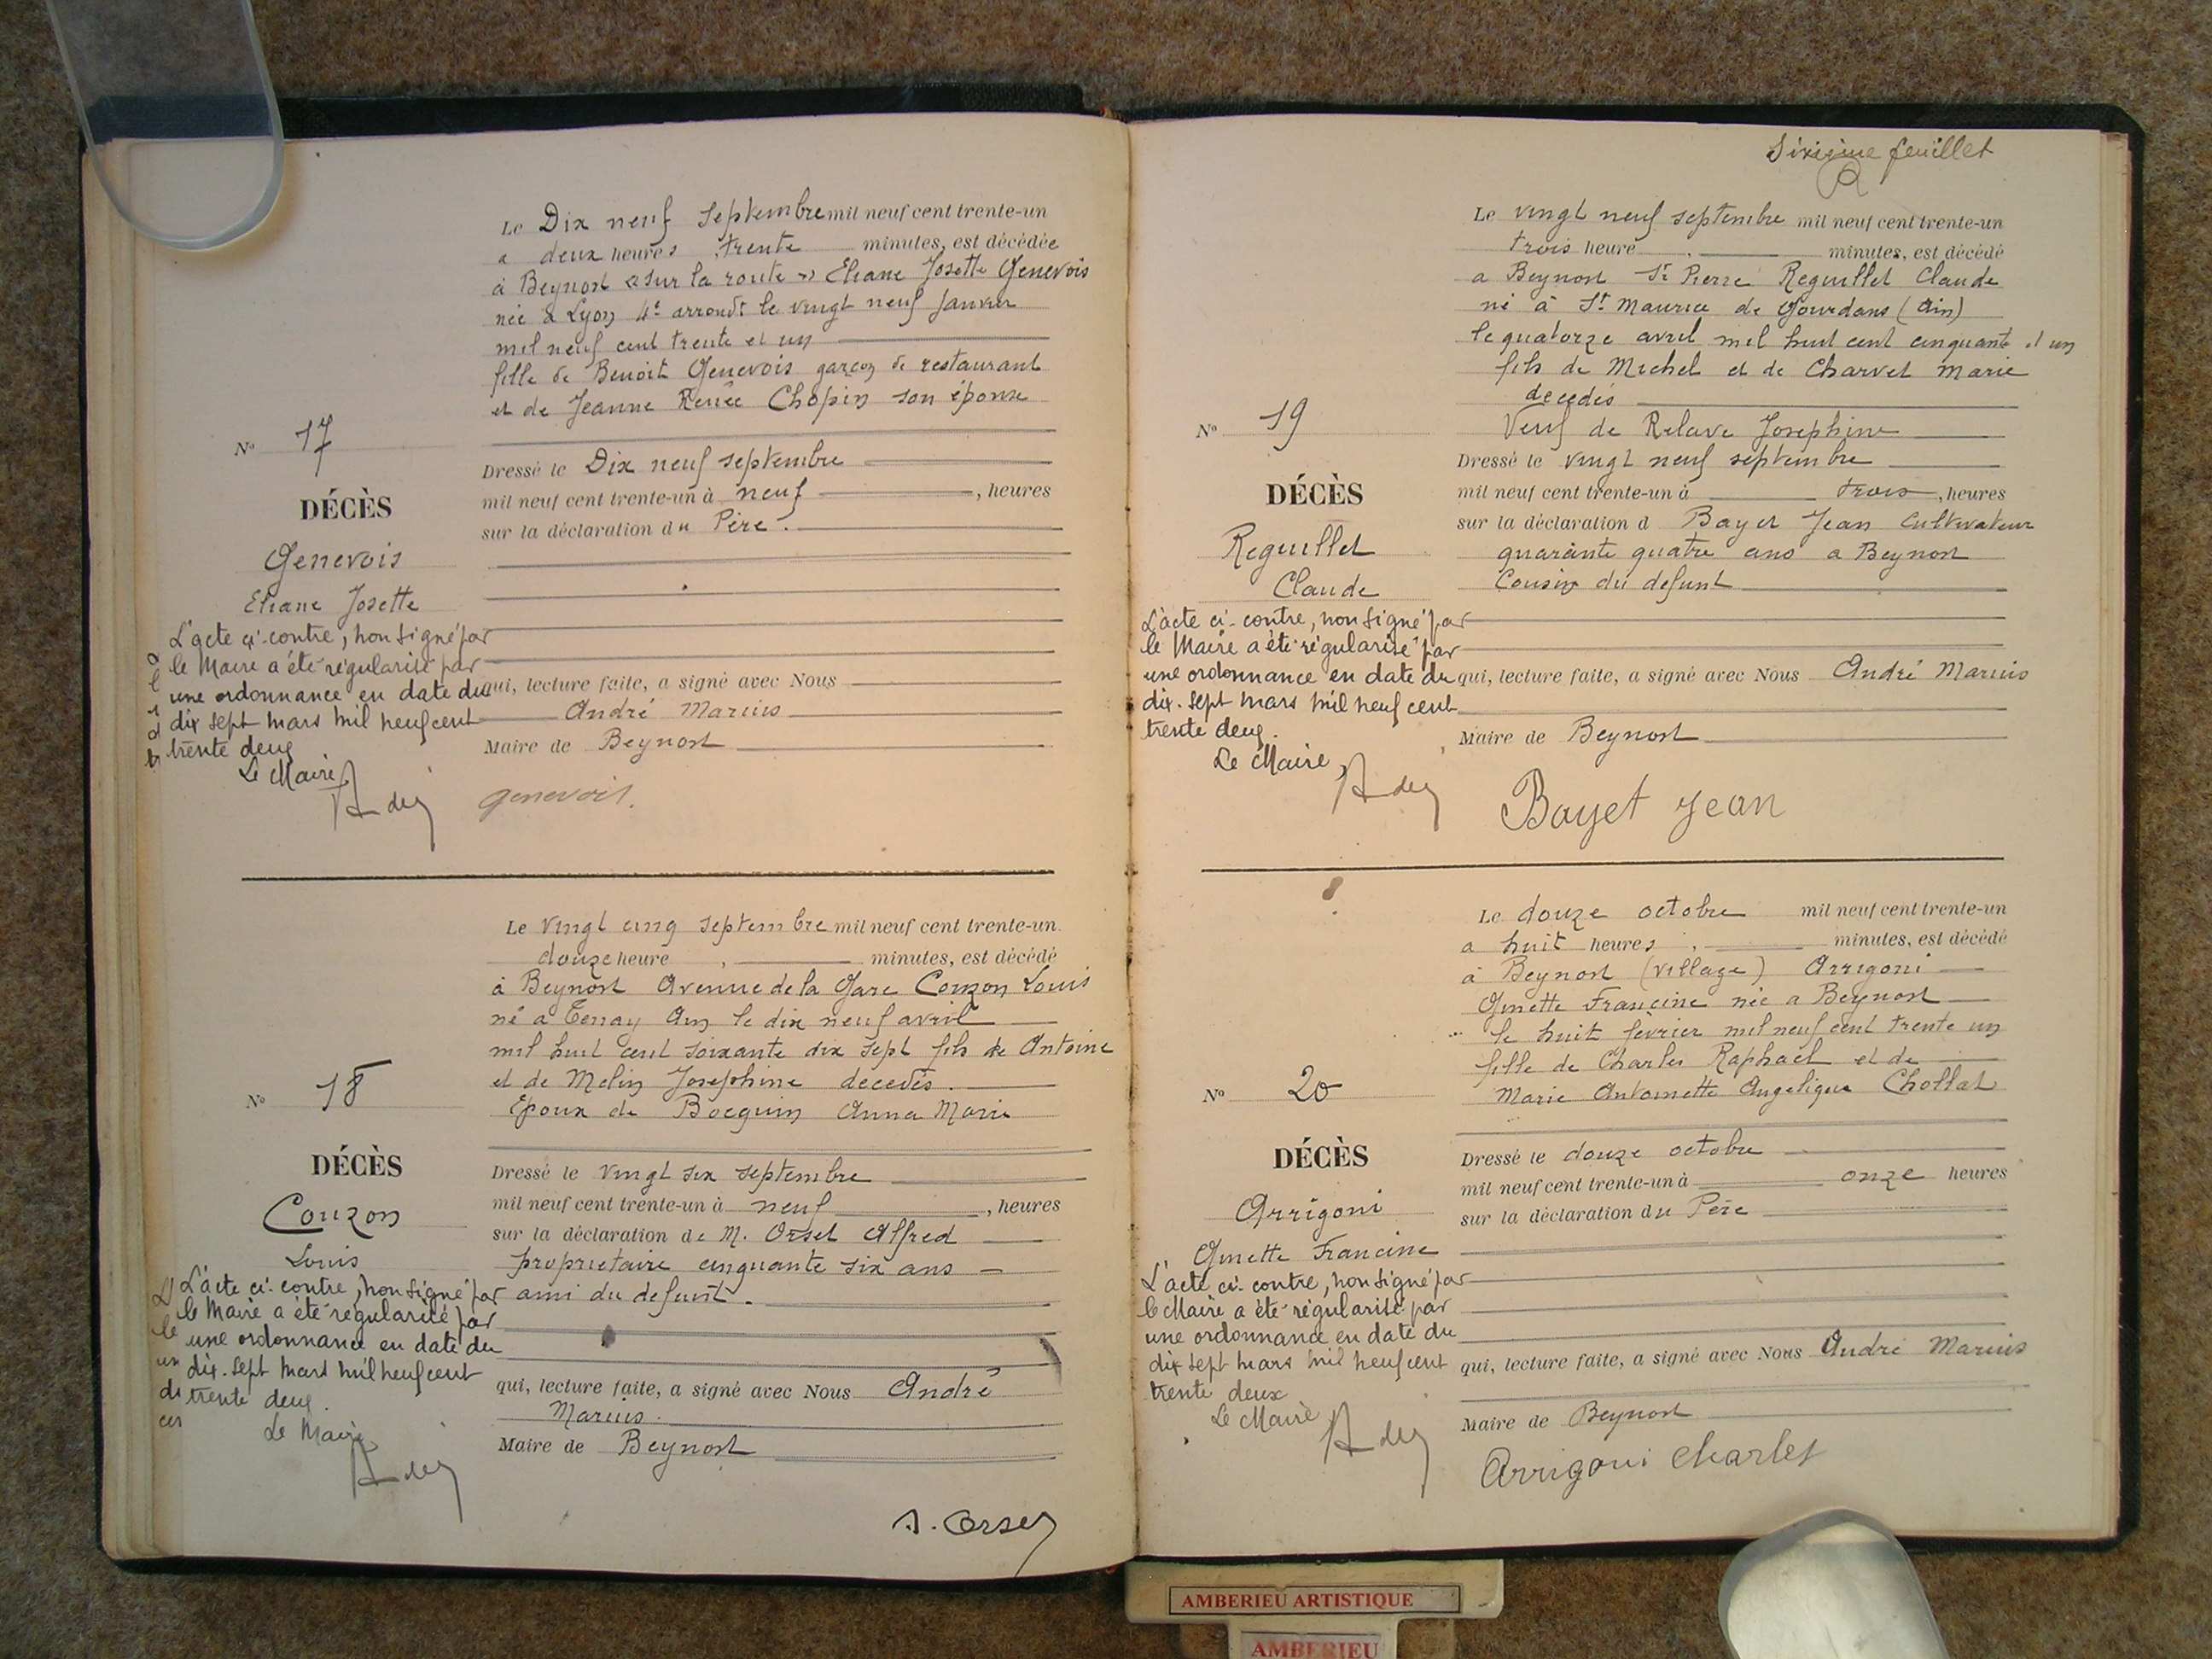 Le Dix neuf Septembre mil neuf cent trente-un
a deux heures, trente minutes, est décédée
à Beynost « sur la route » Eliane Josette Genevois
née à Lyon 4e arrondt le vingt neuf Janvier
mil neuf cent trente et un
fille de Benoit Genevois garçon de restaurant
et de Jeanne Renée Chopin son épouse
No 17
Dressé le Dix neuf septembre
mil neuf cent trente-un à neuf, heures
sur la déclaration du Père.
DÉCÈS
Genevois
Eliane Josette
L'acte ci-contre, non signé par
le Maire a été régularisé par
une ordonnance en date du
dix sept mars mil neuf cent
trente deux
Le Maire
qui, lecture faite, a signé avec Nous
André Marius
Maire de Beynost
Genevois.
Le vingt cinq septembre mil neuf cent trente-un
douze heure, minutes, est décédé
à Beynost Avenue de la Gare Couzon Louis
né à Tenay Ain le dix neuf avril
mil huit cent soixante dix sept fils de Antoine
et de Melin Josephine décédés.
Epoux de Bocquin Anna Marie
No 18
Dressé le vingt six septembre
mil neuf cent trente-un à neuf, heures
sur la déclaration de M. Orsel Alfred
propriétaire cinquante six ans
ami du defunt.
DÉCÈS
Couzon
Louis
L'acte ci-contre, non signé par
le Maire a été régularisé par
une ordonnance en date du
dix-sept mars mil neuf cent
trente deux.
Le Maire
qui, lecture faite, a signé avec Nous André
Marius.
Maire de Beynost
A. Orsel
Sixième feuillet
Le vingt neuf septembre mil neuf cent trente-un
trois heure minutes, est décédé
a Beynost St Pierre Reguillet Claude
né à St Maurice de Gourdans (Ain)
le quatorze avril mil huit cent cinquante et un
fils de Michel et de Charvet Marie
decedés
Veuf de Relave Josephine
No 19
Dressé le vingt neuf septembre
mil neuf cent trente-un à trois, heures
sur la déclaration d Bayet Jean Cultivateur
quarante quatre ans a Beynost
Cousin du defunt
DÉCÈS
Reguillet
Claude
L'acte ci-contre, non signé par
le Maire a été régularisé par
une ordonnance en date du
dix-sept mars mil neuf cent
trente deux.
Le Maire,
qui, lecture faite, a signé avec Nous André Marius
Maire de Beynost
Bayet Jean
Le douze octobre mil neuf cent trente-un
a huit heures, minutes, est décédé
à Beynost (village) Arrigoni
Ginette Francine née a Beynost
le huit février mil neuf cent trente un
fille de Charles Raphaël et de
Marie Antoinette Angelique Chollat
No 20
Dressé le douze octobre
mil neuf cent trente-un à onze heures
sur la déclaration du Père
DÉCÈS
Arrigoni
Ginette Francine
L'acte ci-contre, non signé par
le Maire a été régularisé par
une ordonnance en date du
dix sept mars mil neuf cent
trente deux
Le Maire
qui, lecture faite, a signé avec Nous André Marius
Maire de Beynost
Arrigoni Charles
AMBERIEU ARTISTIQUE
AMBERIEU